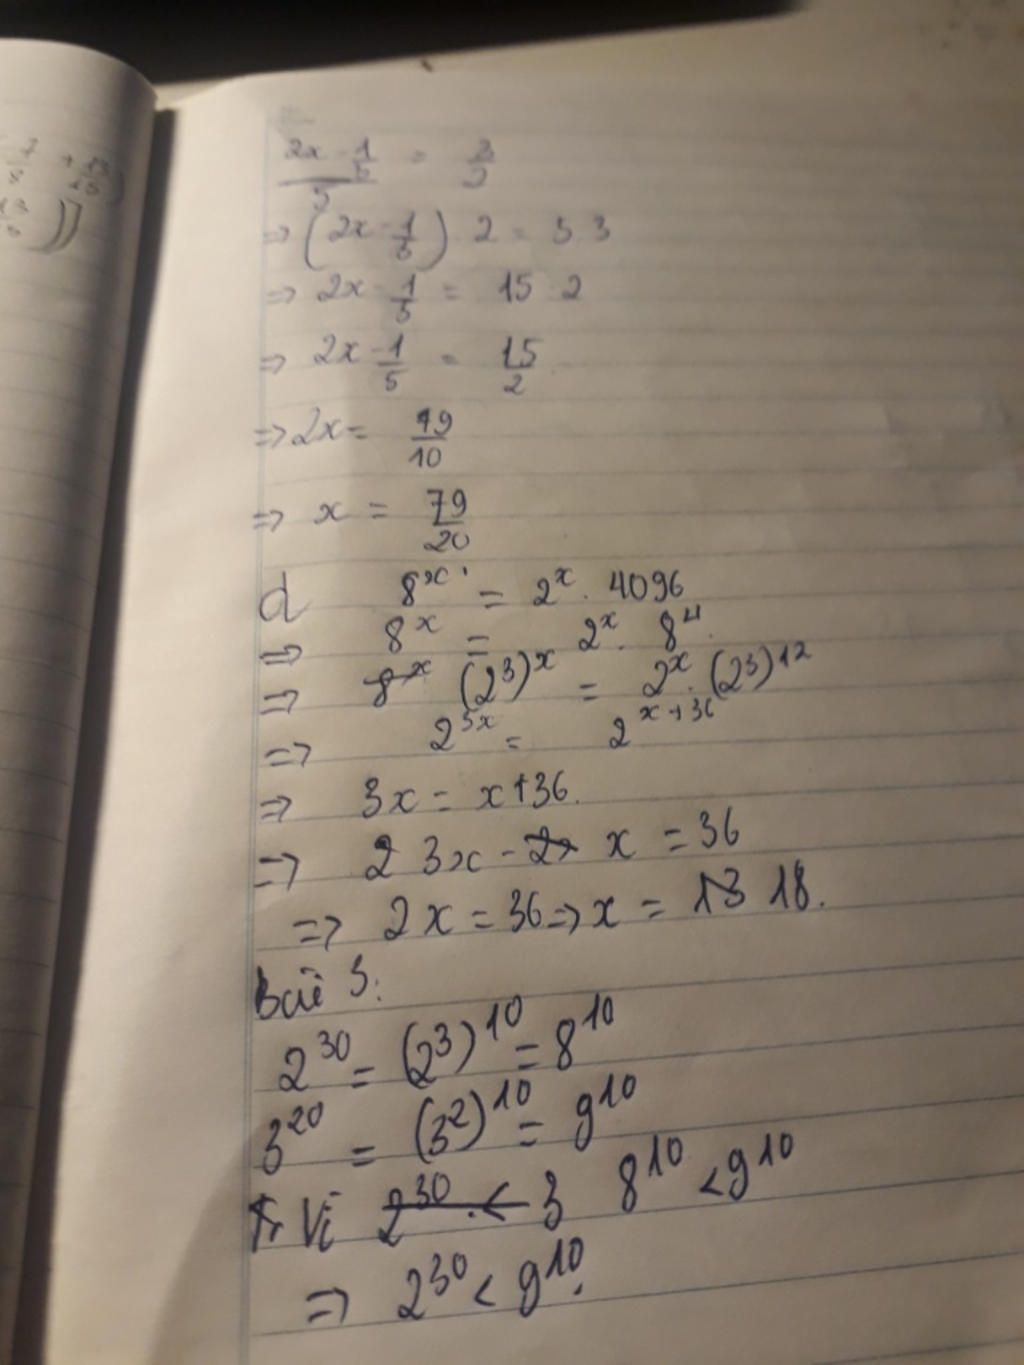 (2x - 1/5)/5 = 3/2
=> (2x - 1/5) 2 = 5.3
=> 2x - 1/5 = 15 : 2
=> 2x - 1/5 = 15/2
=> 2x = 79/10
=> x = 79/20
d 8^x = 2^x . 4096
=> 8^x = 2^x . 8^4
=> (2^3)^x = 2^x . (2^3)^12
=> 2^3x = 2^x+36
=> 3x = x+36.
=> 2 3x - x = 36
=> 2x = 36 => x = 18.
Bài 3:
2^30 = (2^3)^10 = 8^10
3^20 = (3^2)^10 = 9^10
Vì 8^10 < 9^10
=> 2^30 < 9^10.